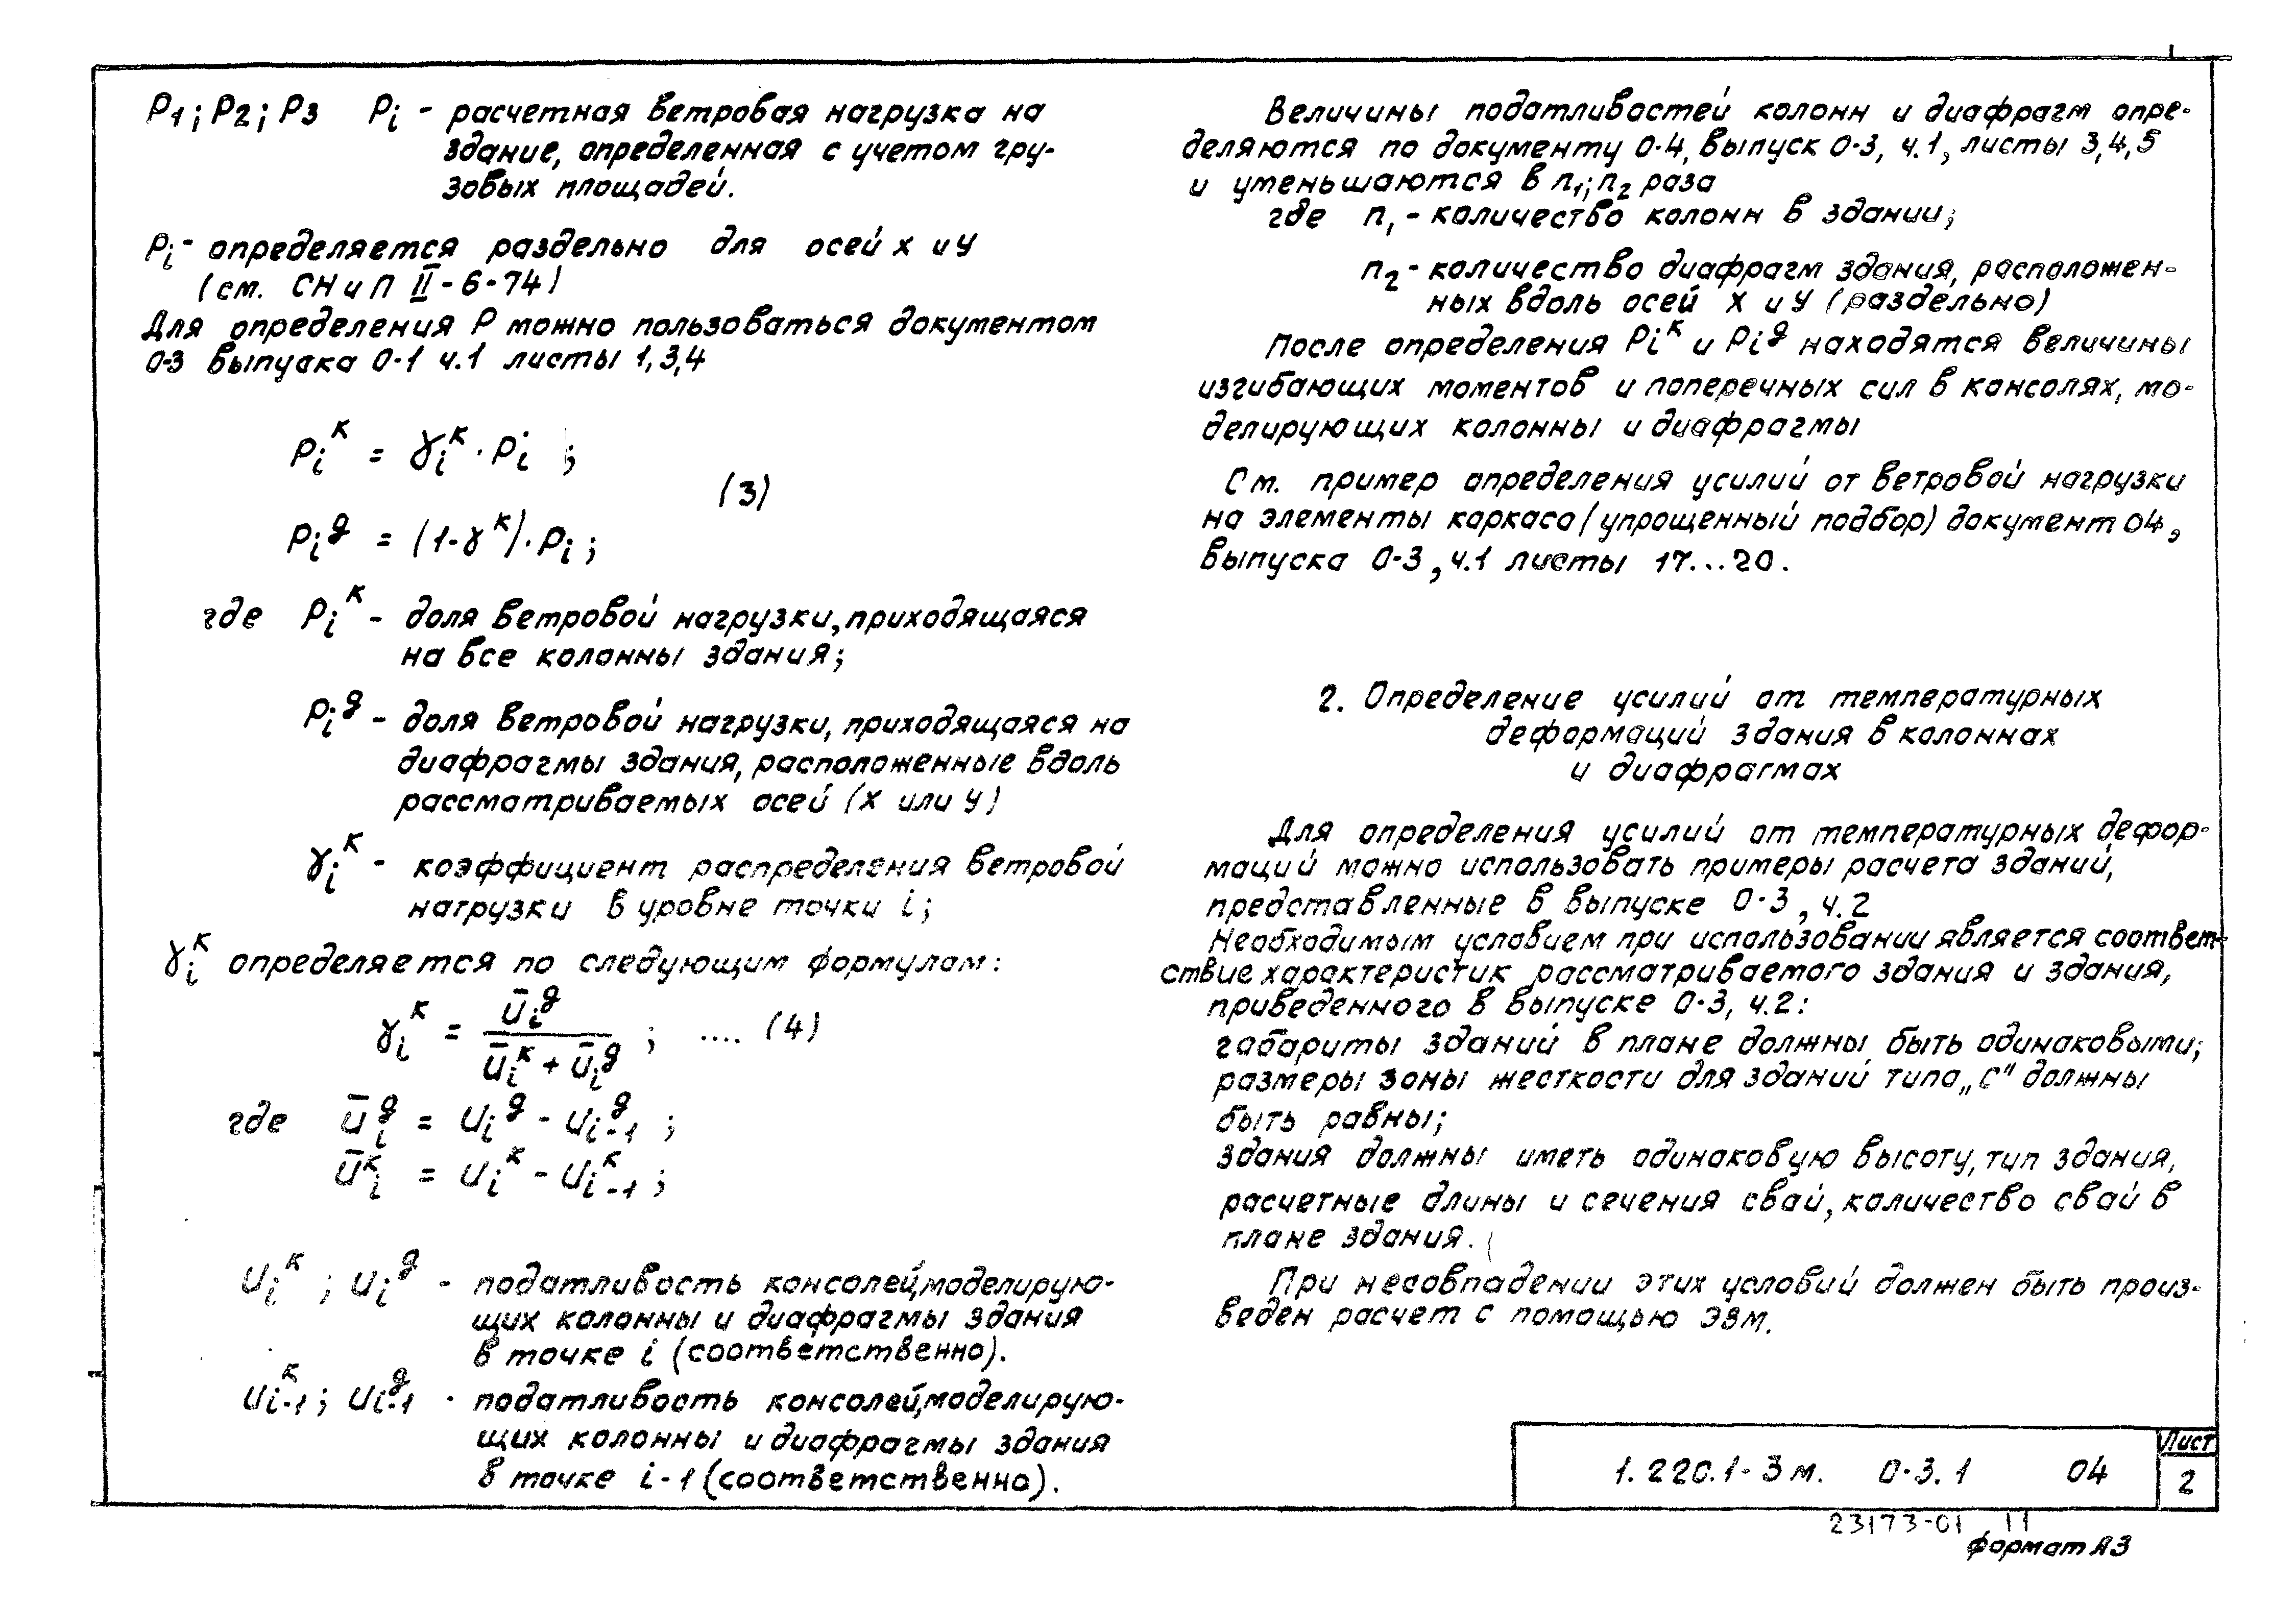 P1; P2; P3 Pi - расчетная ветровая нагрузка на
здание, определенная с учетом гру-
зовых площадей.
Pi - определяется раздельно для осей х и у
(см. СНиП II-6-74)
Для определения Р можно пользоваться документом
0-3 выпуска 0-1 ч.1 листы 1,3,4
Pᵢᴷ = γᵢᴷ · Pᵢ ;
(3)
Pᵢᵍ = (1-γᴷ) · Pᵢ ;
где Pᵢᴷ - доля ветровой нагрузки, приходящаяся
на все колонны здания;
Pᵢᵍ - доля ветровой нагрузки, приходящаяся на
диафрагмы здания, расположенные вдоль
рассматриваемых осей (х или у)
γᵢᴷ - коэффициент распределения ветровой
нагрузки в уровне точки i;
γᵢᴷ определяется по следующим формулам:
γᵢᴷ = Ūᵢᵍ / (Ūᵢᴷ + Ūᵢᵍ) ; .... (4)
где Ūᵢᵍ = Uᵢᵍ - Uᵢ₋₁ᵍ ;
Ūᵢᴷ = Uᵢᴷ - Uᵢ₋₁ᴷ ;
Uᵢᴷ ; Uᵢᵍ - податливость консолей, моделирую-
щих колонны и диафрагмы здания
в точке i (соответственно).
Uᵢ₋₁ᴷ ; Uᵢ₋₁ᵍ - податливость консолей, моделирую-
щих колонны и диафрагмы здания
в точке i-1 (соответственно).
Величины податливостей колонн и диафрагм опре-
деляются по документу 0-4, выпуск 0-3, ч.1, листы 3,4,5
и уменьшаются в n₁; n₂ раза
где n₁ - количество колонн в здании;
n₂ - количество диафрагм здания, расположен-
ных вдоль осей Х и У (раздельно)
После определения Pᵢᴷ и Pᵢᵍ находятся величины
изгибающих моментов и поперечных сил в консолях, мо-
делирующих колонны и диафрагмы
См. пример определения усилий от ветровой нагрузки
на элементы каркаса (упрощенный подбор) документ 04,
выпуска 0-3, ч.1 листы 17...20.
2. Определение усилий от температурных
деформаций здания в колоннах
и диафрагмах
Для определения усилий от температурных дефор-
маций можно использовать примеры расчета зданий,
представленные в выпуске 0-3, ч.2
Необходимым условием при использовании является соответ-
ствие характеристик рассматриваемого здания и здания,
приведенного в выпуске 0-3, ч.2:
габариты зданий в плане должны быть одинаковыми;
размеры зоны жесткости для зданий типа „С" должны
быть равны;
здания должны иметь одинаковую высоту, тип здания,
расчетные длины и сечения свай, количество свай в
плане здания.
При несовпадении этих условий должен быть произ-
веден расчет с помощью ЭВМ.
1.220.1-3м. 0-3.1 04
Лист
2
23173-01 11
Формат А3